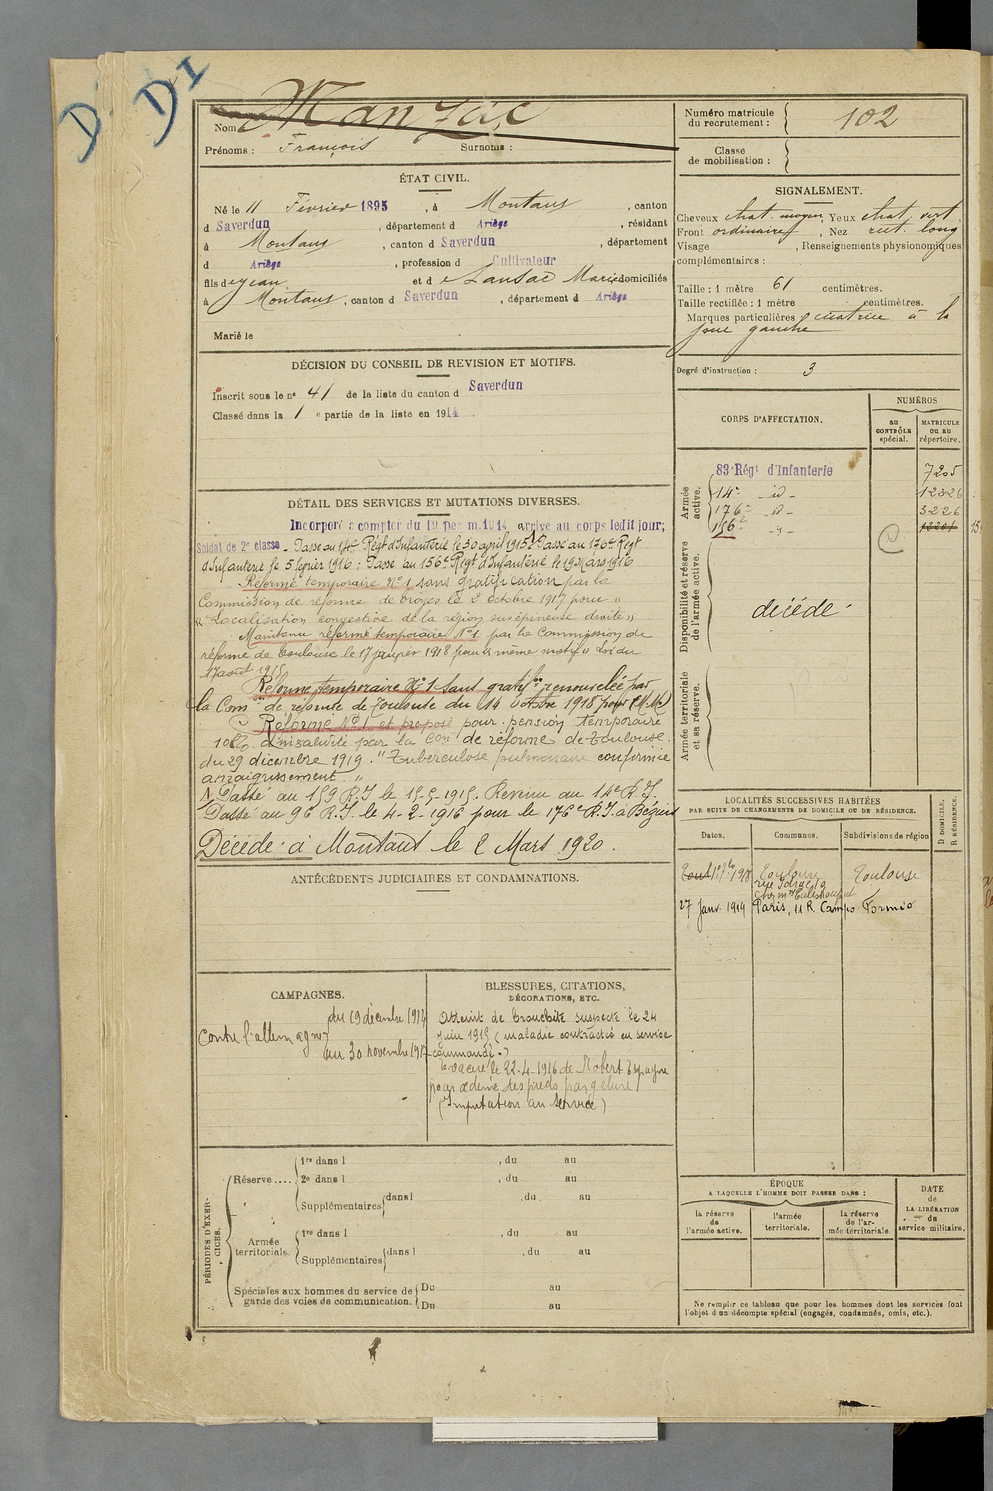 D. DI
Nom Manzac
Prénoms : François Surnoms :
Numéro matricule du recrutement : 102
Classe de mobilisation :
ÉTAT CIVIL.
Né le 11 Février 1895, à Montaus, canton
d Saverdun, département d Ariège, résidant
à Montaus, canton d Saverdun, département
d Ariège, profession d Cultivateur
fils de Jean et d e Lansac Marie domiciliés
à Montaus, canton d Saverdun, département d Ariège
Marié le
SIGNALEMENT.
Cheveux chat. moyen, Yeux chat. vert.
Front ordinaire, Nez rect. long
Visage , Renseignements physionomiques
complémentaires :
Taille : 1 mètre 61 centimètres.
Taille rectifiée : 1 mètre centimètres.
Marques particulières cicatrice à la
joue gauche
Degré d'instruction : 3
DÉCISION DU CONSEIL DE REVISION ET MOTIFS.
Inscrit sous le nº 41 de la liste du canton d Saverdun
Classé dans la 1 e partie de la liste en 1914.
DÉTAIL DES SERVICES ET MUTATIONS DIVERSES.
Incorporé à compter du 19 Décem. 1914 arrivé au corps ledit jour;
Soldat de 2e classe - Passé au 14e Régt d'Infanterie le 30 avril 1915. Passé au 176e Régt
d'Infanterie le 5 février 1916 : Passé au 156e Régt d'Infanterie le 19 Mars 1916
Réformé temporaire Nº 1 sans gratification par la
Commission de réforme de Troyes le 2 octobre 1917 pour "
" Localisation congestive de la région susépineuse droite "
Maintenu réformé temporaire Nº 1 par la Commission de
réforme de Toulouse le 17 janvier 1918 pour " même motif " Loi du
17 août 1915
Réforme temporaire Nº 1 sans gratifon renouvelée par
la Comon de réforme de Toulouse du 14 Octobre 1918 pour (M.M.)
Réformé Nº 1 et proposé pour pension temporaire
10% d'invalidité par la Con de réforme de Toulouse.
du 29 décembre 1919. "Tuberculose pulmonaire confirmée
amaigrissement. "
Passé au 159 R.I le 15-5-1915. Revenu au 14e R.I.
Passé au 96 R.I. le 4-2-1916 pour le 176e R.I. à Béziers
Décédé à Montaut le 2 Mars 1920.
CORPS D'AFFECTATION.
NUMÉROS
au CONTRÔLE spécial.
MATRICULE ou au répertoire.
Armée active.
83e Régt d'Infanterie 7205
14e - id - 12326
176e - id - 3226
156e - id -
Disponibilité et réserve de l'armée active.
décédé
Armée territoriale et sa réserve.
LOCALITÉS SUCCESSIVES HABITÉES
PAR SUITE DE CHANGEMENTS DE DOMICILE OU DE RÉSIDENCE.
Dates. Communes. Subdivisions de région D DOMICILE. R RÉSIDENCE.
Toulouse Toulouse
27 Janv. 1919 Paris, 11 R. Campo Formio
ANTÉCÉDENTS JUDICIAIRES ET CONDAMNATIONS.
CAMPAGNES.
Contre l'allemagne
du 19 décembre 1914
au 30 novembre 1917
BLESSURES, CITATIONS,
DÉCORATIONS, ETC.
Atteint de bronchite suspecte le 24
juin 1915 (maladie contractée en service
commandé.)
Evacué le 22.4.1916 de Robert Espagne
pour œdème des pieds par gelure
(Imputation au Service)
PÉRIODES D'EXERCICES.
Réserve .... 1re dans l , du au
2e dans l , du au
Supplémentaires dans l , du au
Armée territoriale. 1re dans l , du au
Supplémentaires dans l , du au
Spéciales aux hommes du service de garde des voies de communication. Du au
Du au
ÉPOQUE
A LAQUELLE L'HOMME DOIT PASSER DANS :
la réserve de l'armée active.
l'armée territoriale.
la réserve de l'armée territoriale.
DATE de LA LIBÉRATION du service militaire.
Ne remplir ce tableau que pour les hommes dont les services font
l'objet d'un décompte spécial (engagés, condamnés, omis, etc.).